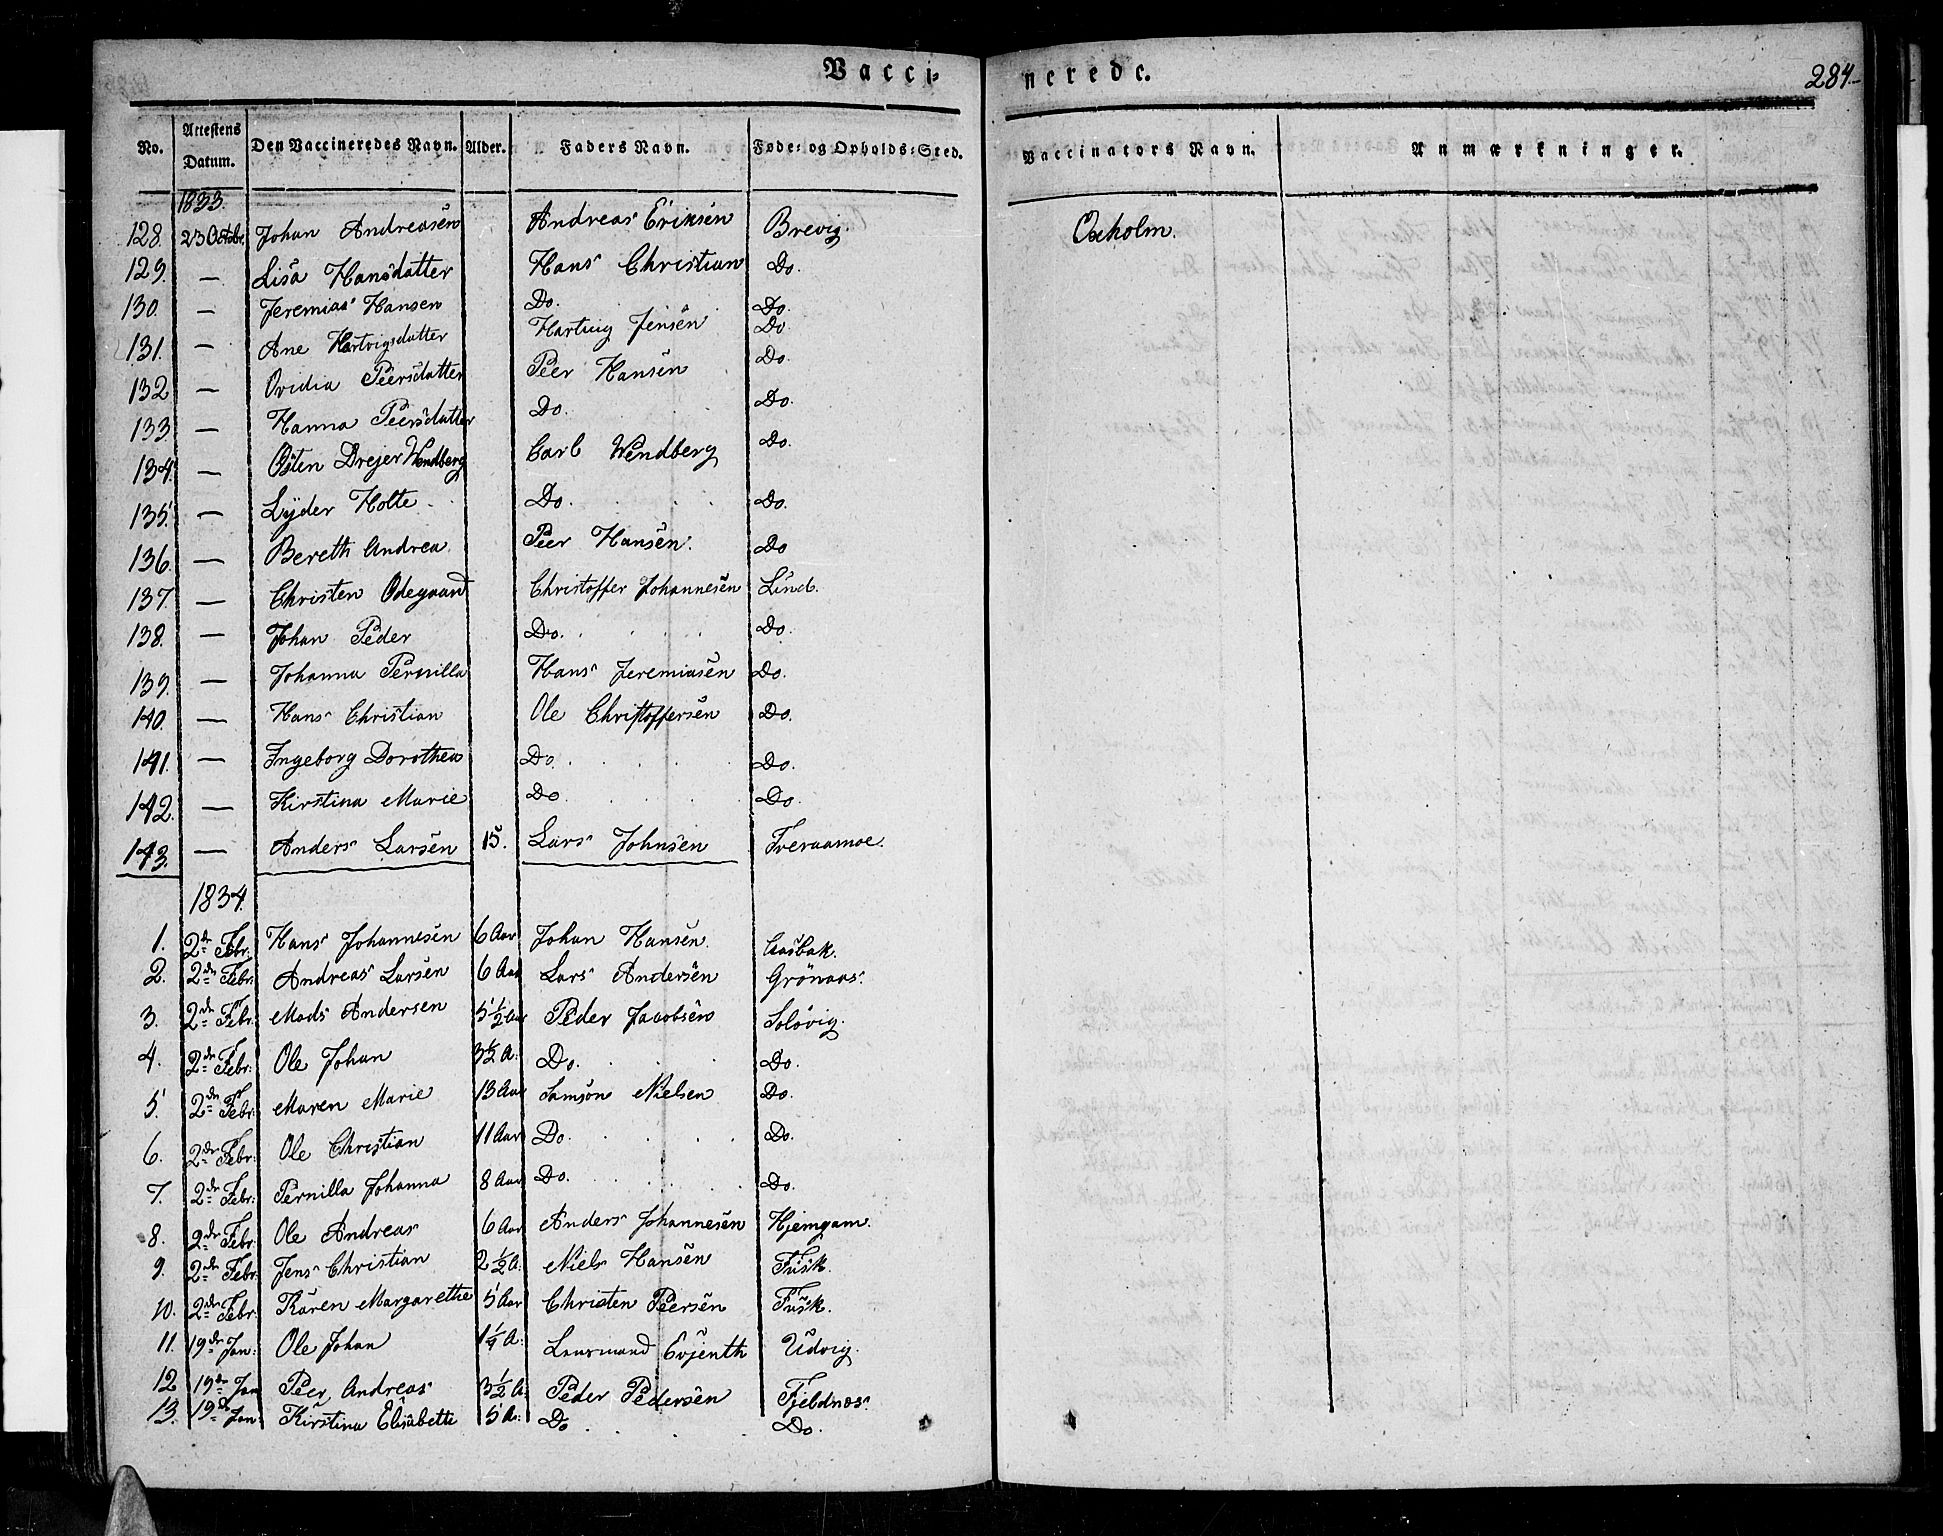 Vacci-
nerede.
284.
No. Attestens Datum. Den Vaccineredes Navn. Alder. Faders Navn. Føde- og Opholds-Sted. Vaccinators Navn. Anmærkninger.
1833.
128. 23 Octbr. Johan Andreasen Andreas Eriksen Brevig. Oxholm.
129. — Lisa Hansdatter Hans Christian Do.
130. — Jeremias Hansen Do. Do.
131. — Ane Hartvigsdatter Hartvig Jensen Do
132 — Ovidia Peersdatter Peer Hansen Do.
133. — Hanna Peersdatter Do. Do.
134. — Østen Drejer Wendberg Carl Wendberg Do.
135. — Lyder Holte Do. Do.
136. — Bereth Andrea Peer Hansen. Do
137. — Christen Odegaard Christoffer Johannesen Lind.
138. — Johan Peder Do. Do.
139. — Johanna Pernilla Hans Jeremiasen Do.
140. — Hans Christian Ole Christoffersen Do.
141. — Ingeborg Dorothea Do. Do.
142. — Kirstina Marie Do Do.
143. — Anders Larsen 15. Lars Johnsen Tveraamoe.
1834.
1. 2den Febr. Hans Johannesen 6 Aar Johan Hansen. Aasbak.
2. 2den Febr. Andreas Larsen 6 Aar Lars Andersen Grönaas.
3. 2den Febr. Mads Andersen 5½ Aar Peder Jacobsen Solövig.
4. 2den Febr. Ole Johan 3½ A. Do. Do.
5. 2den Febr. Maren Marie 13 Aar Samson Nielsen Do.
6. 2den Febr. Ole Christian 11 Aar Do. Do.
7. 2den Febr. Pernilla Johanna 8 Aar Do. Do.
8. 2den Febr. Ole Andreas 6 Aar Anders Johannesen Hjemgam.
9. 2den Febr. Jens Christian 2½ A. Niels Hansen Fusk.
10. 2den Febr. Karen Margarethe 5 Aar Christen Peersen Fusk.
11. 19de Jan: Ole Johan 1¼ A: Lensmand Evjenth Udvig.
12 19de Jan Peer Andreas 3½ A. Peder Pedersen Fjeldnæs.
13. 19de Jan: Kirstina Elisabeth 5 A: Do Do.